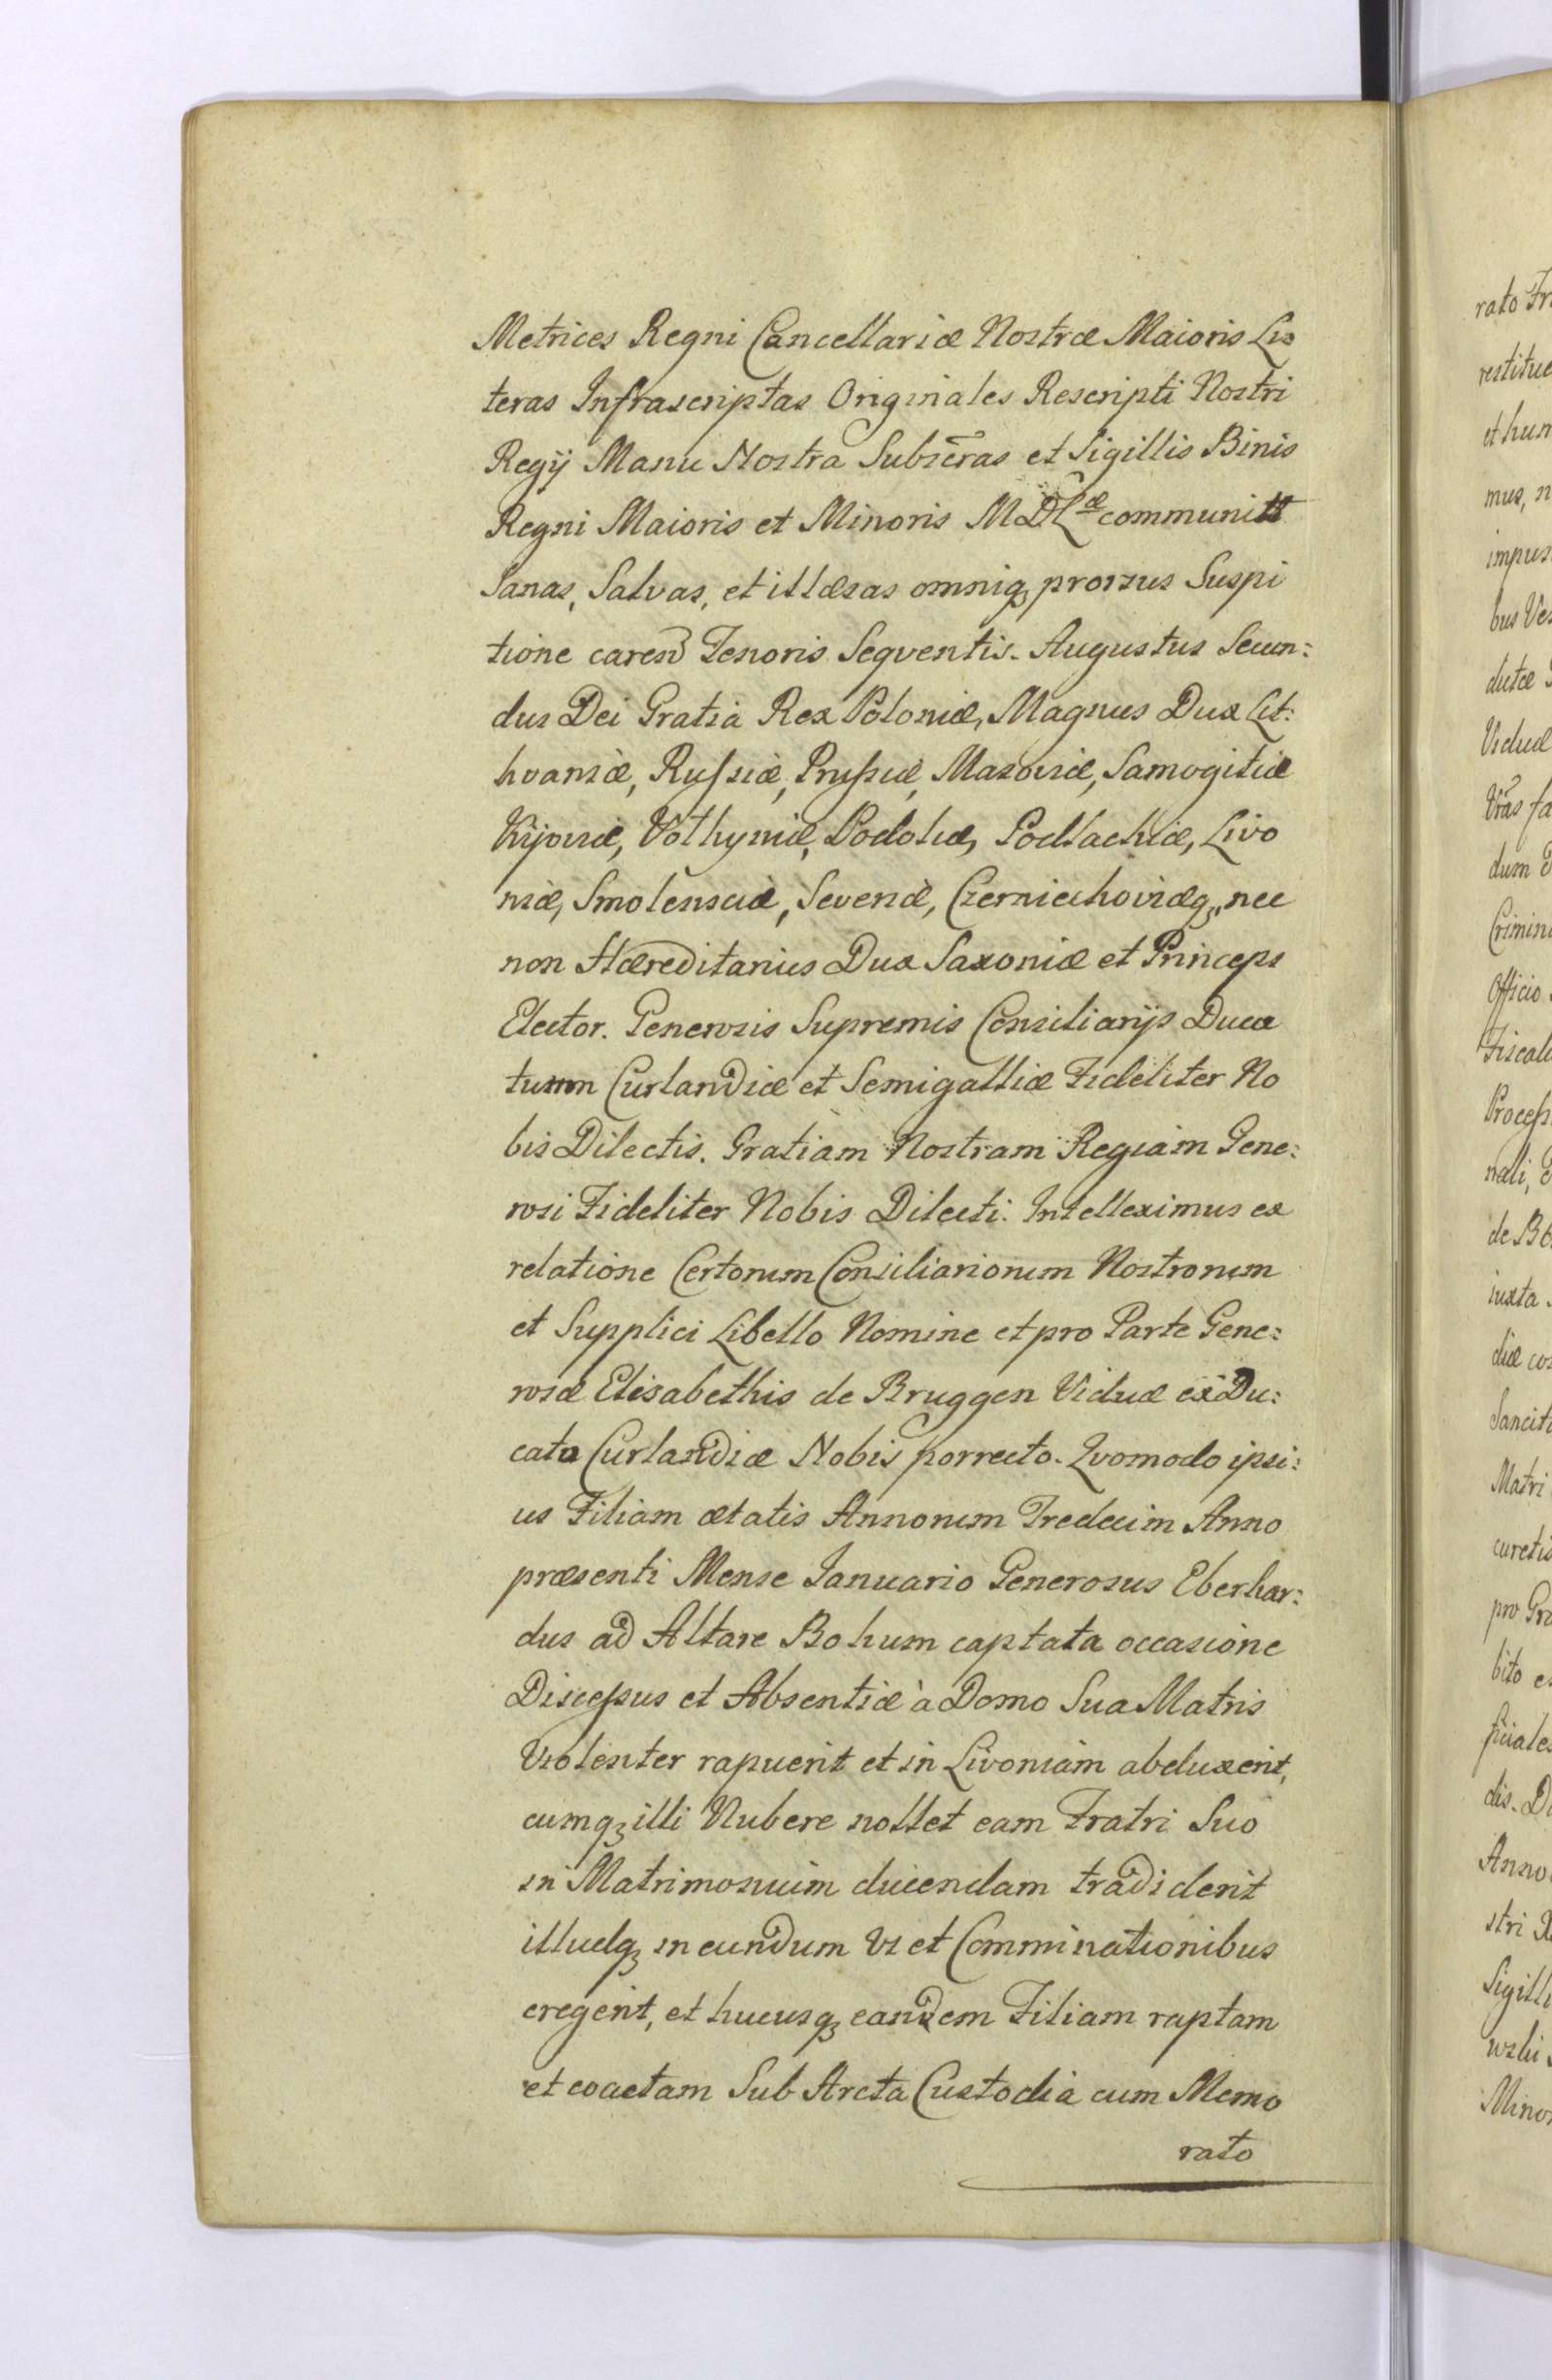 Metrices Regni Cancellariæ Nostræ Maioris Lis
teras Infrascriptas Originales Rescripti Nostri
Regij Manu Nostra Subscr̃as et Sigillis Binis
Regni Maioris et Minoris MDLæ communitt
Sanas, Salvas, et illæsas omniq3 prorsus Suspi
tione caren̄ Tenoris Seqventis. Augustus Secun:
dus Dei Gratia Rex Poloniæ, Magnus Dux Lit:
hvaniæ, Rußiæ, Prußiæ, Mazoviæ, Samogitiæ
Kijoviæ, Volhyniæ, Podoliæ, Podlachiæ, Livo
niæ, Smolensciæ, Severiæ, Czerniechoviæq3, nec
non Hæreditarius Dux Saxoniæ et Princeps
Elector. Generosis Supremis Consiliarijs Duca
tuum Curlandiæ et Semigalliæ Fideliter No
bis Dilectis. Gratiam Nostram Regiam Gene:
rosi Fideliter Nobis Dilecti. Intelleximus ex
relatione Certorum Consiliariorum Nostrorum
et Supplici Libello Nomine et pro Parte Gene:
rosæ Elisabethis de Bruggen Viduæ ex Du:
catu Curlandiæ Nobis porrecto. Qvomodo ipsi:
us Filiam ætatis Annorum Tredecim Anno
præsenti Mense Ianuario Generosus Eberhar:
dus ad Altare Bohum captata occasione
Disceßus et Absentiæ à Domo Sua Matris
Violenter rapuerit et in Livoniam abduxerit,
cumq3 illi Nubere nollet eam Fratri Suo
in Matrimonium ducendam tradiderit
illudq3 in eundum Vi et Comminationibus
eregerit, et hucusq3 eandem Filiam raptam
et coactam Sub Arcta Custodia cum Memo
rato
rato Fr
et hum
mus, n
bus Ve
Viduæ
Officio
de B
iuxta
Matri
pro Gra
bito e
dis. D
Anno
stri
Sigilli
Minor